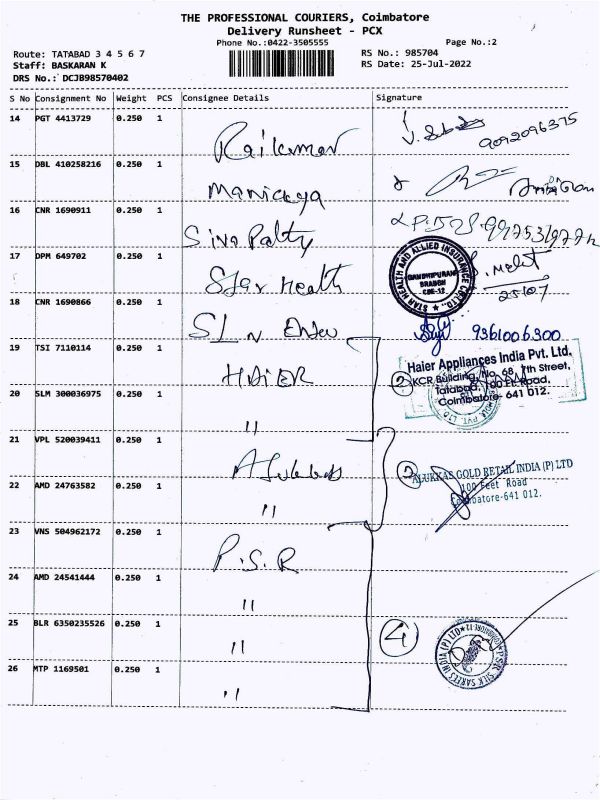 THE PROFESSIONAL COURIERS, Coimbatore
Delivery Runsheet - PCX
Phone No.:0422-3505555 Page No.:2
Route: TATABAD 3 4 5 6 7 RS No.: 985704
Staff: BASKARAN K RS Date: 25-Jul-2022
DRS No.: DCJB98570402
S No Consignment No Weight PCS Consignee Details Signature
14 PGT 4413729 0.250 1
Rajkumar 9092096375
15 DBL 410258216 0.250 1
Manickya
16 CNR 1690911 0.250 1
Siva
17 DPM 649702 0.250 1
Star Health
STAR HEALTH AND ALLIED INSURANCE CO LTD.
GANDHIPURAM
BRANCH
CBE-12
25/07
18 CNR 1690866 0.250 1
9361006300
19 TSI 7110114 0.250 1
HAIER
2
Haier Appliances India Pvt. Ltd.
KCR Building, No. 68, 7th Street,
Tatabad, 100 Ft. Road,
Coimbatore - 641 012.
20 SLM 300036975 0.250 1
"
21 VPL 520039411 0.250 1
2
ALUKKAS GOLD RETAIL INDIA (P) LTD
100 Feet Road
Coimbatore-641 012.
22 AMD 24763582 0.250 1
"
23 VNS 504962172 0.250 1
P.S.R
24 AMD 24541444 0.250 1
"
25 BLR 6350235526 0.250 1
"
4
P.S.R SILK SAREES INDIA (P) LTD
26 MTP 1169501 0.250 1
"